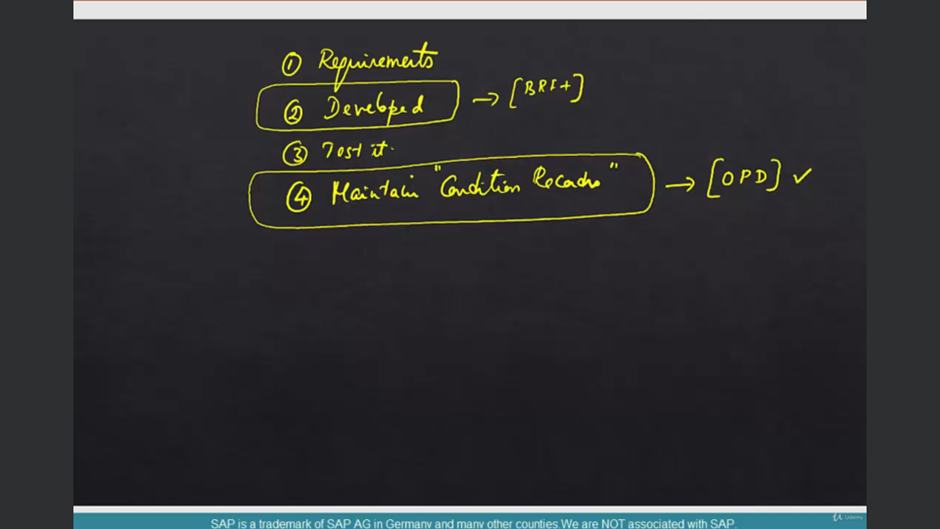 ① Requirements
② Developed → [BRF+]
③ Test it.
④ Maintain "Condition Records" → [OPD] ✓
Udemy
SAP is a trademark of SAP AG in Germany and many other counties.We are NOT associated with SAP.